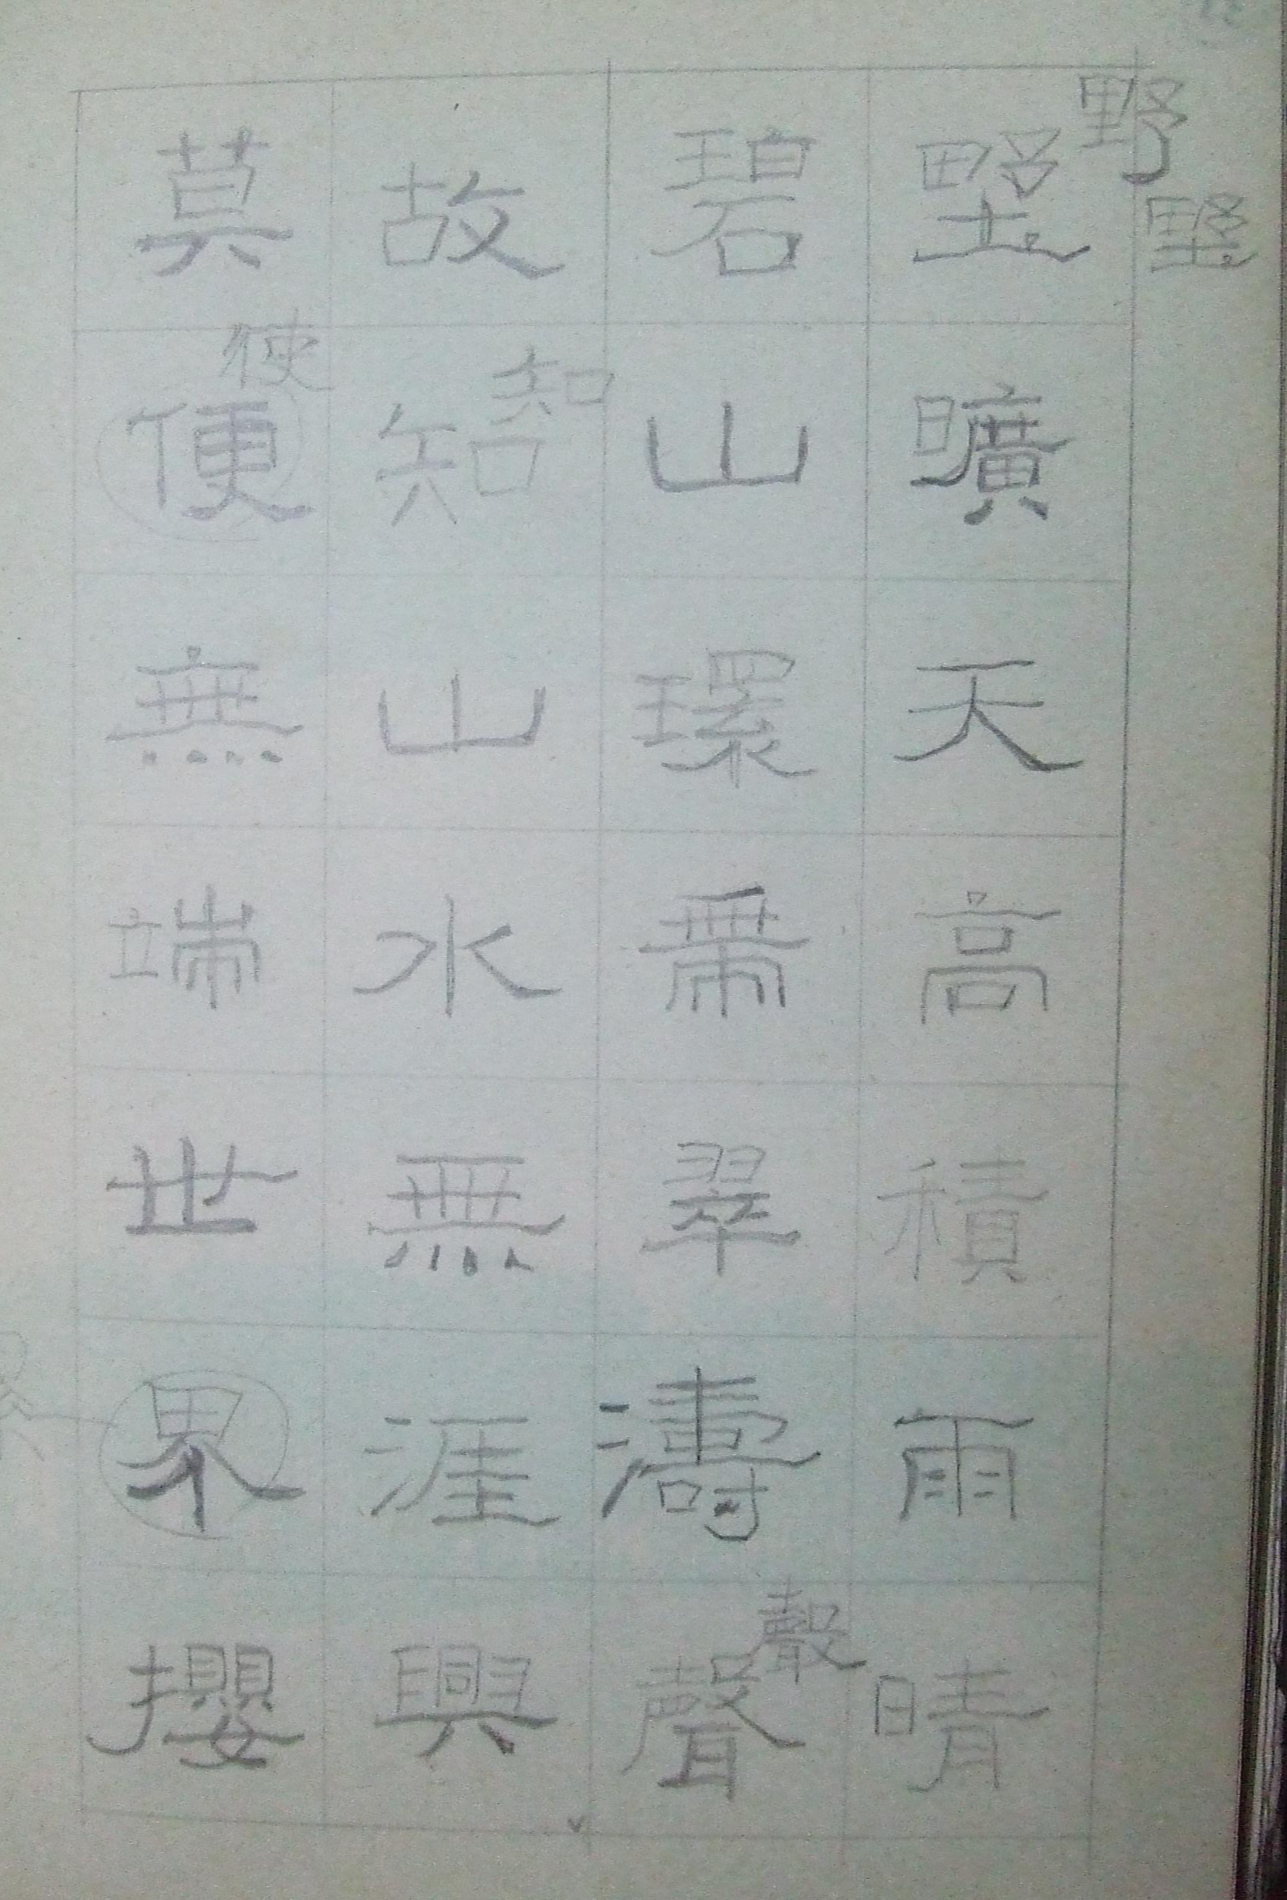 野曠天高積雨晴
碧山環帶翠濤聲
故知山水無涯興
莫使無端世界攖
野
野
知
聲